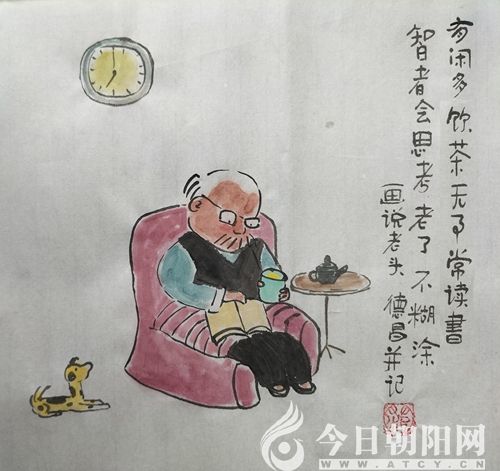 有闲多饮茶无事常读書
智者会思考老了不糊涂
画说老头 德昌并记
今日朝阳网
WWW.ATCY.CN